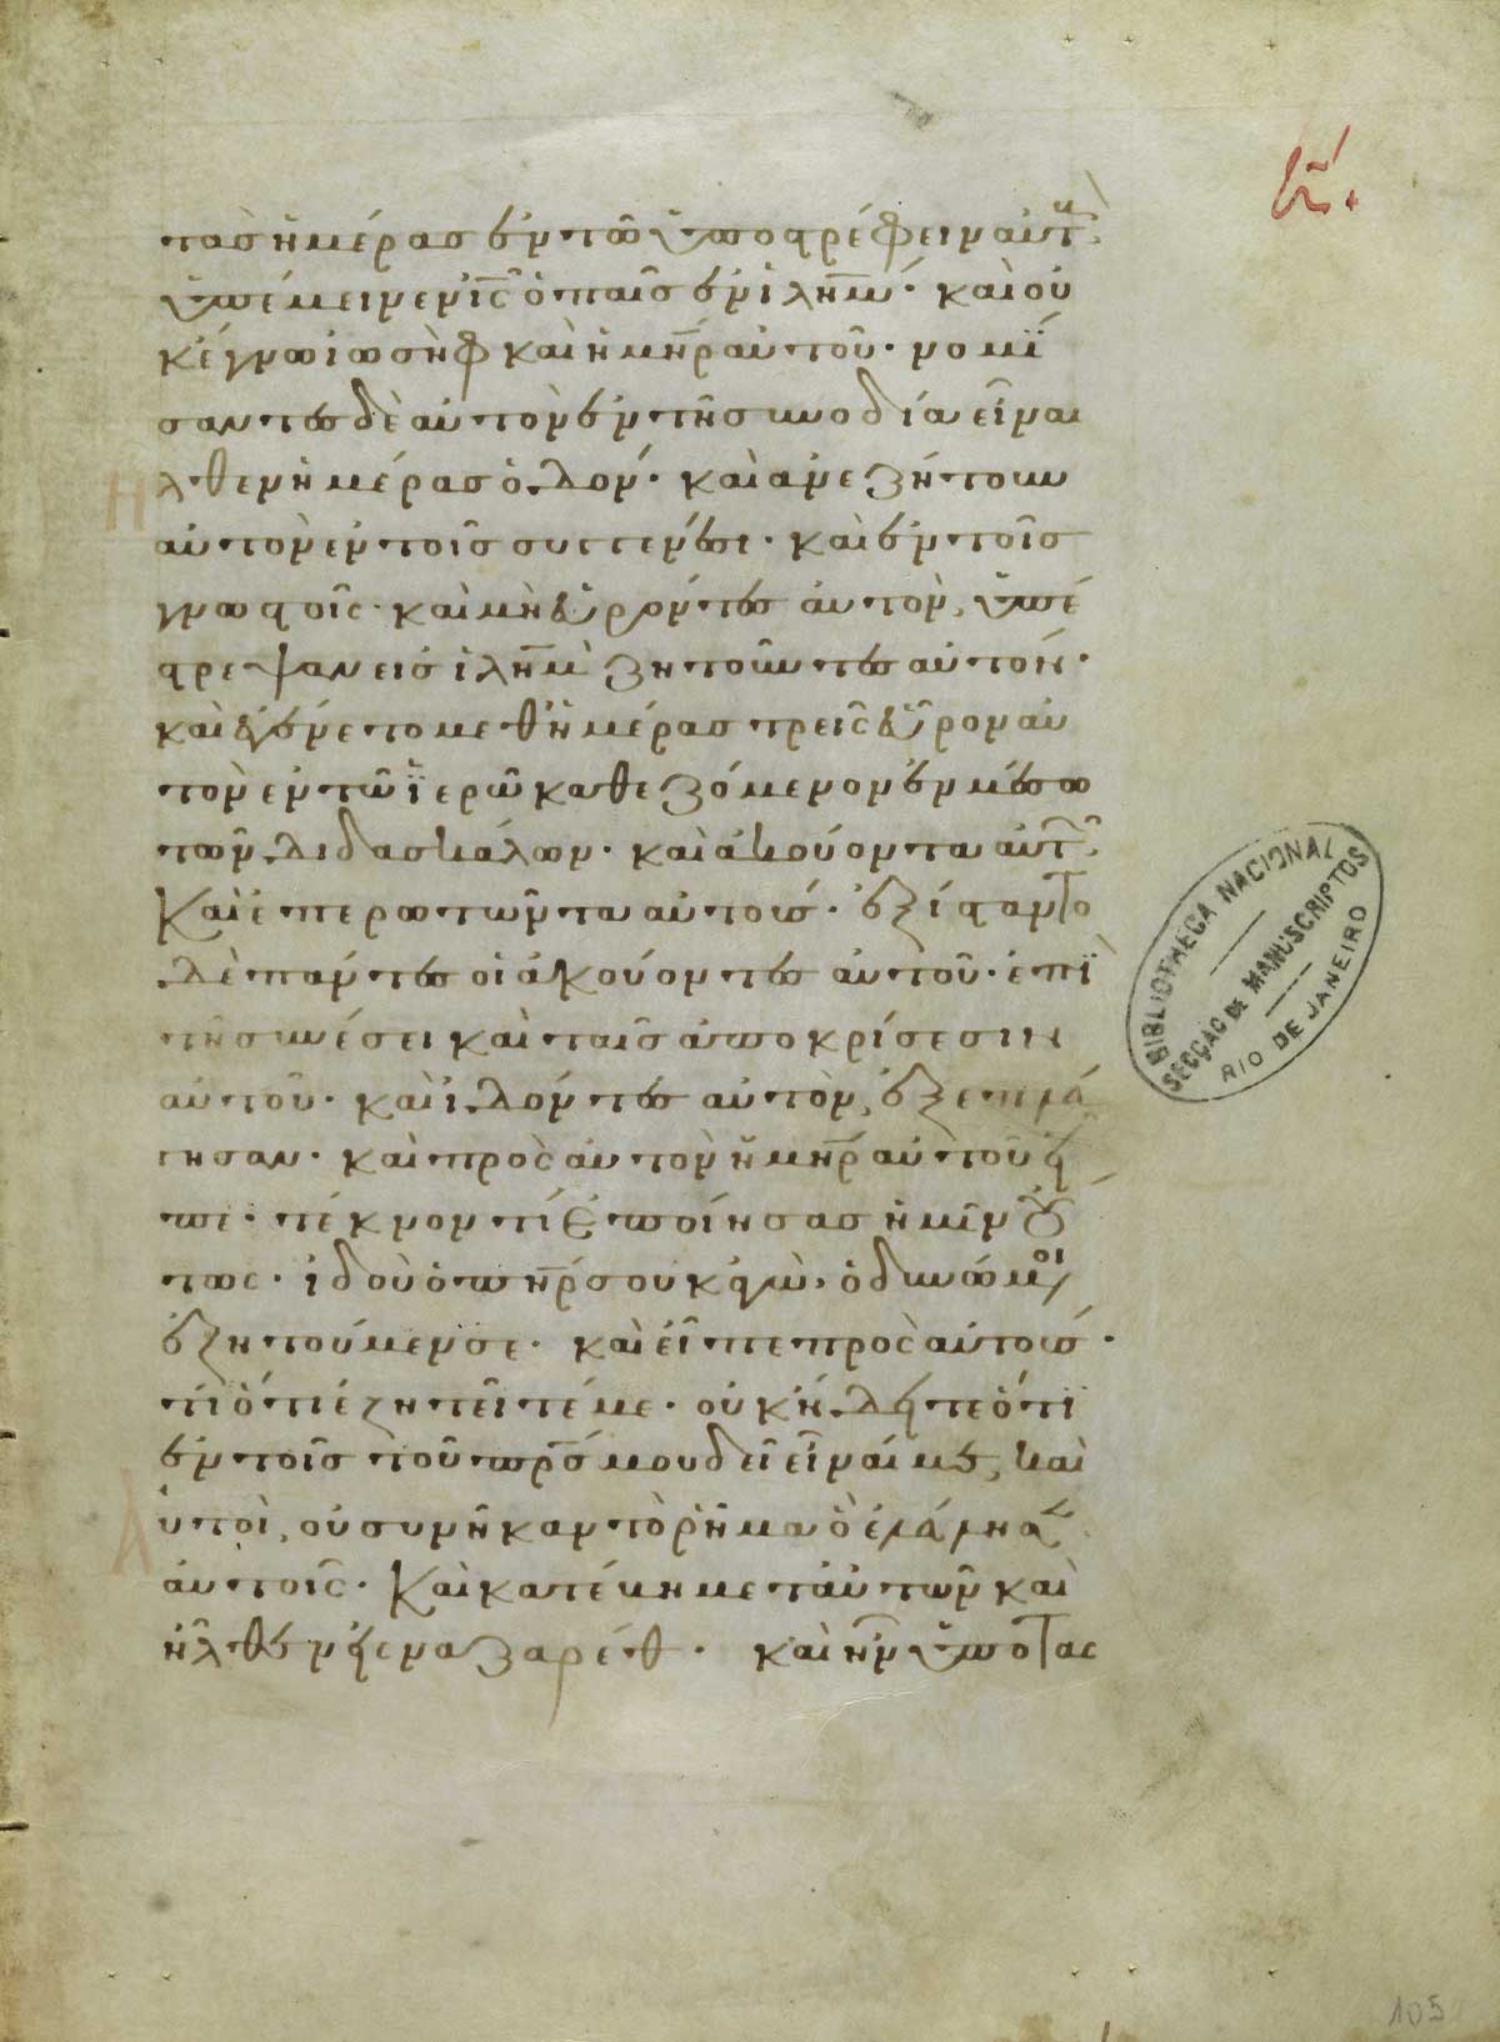 τὰσ ἡμέρασ ἐν τῶ ὑποστρέφειν αὐτ(οὺς)
ὑπέμεινεν ἰς ὁ παῖσ ἐν ἰλημ· καὶ οὐ
κ ἔγνω ἰωσὴφ καὶ ἡ μηρ αὐτοῦ· νομί
σαντεσ δὲ αὐτὸν ἐν τῆ συνοδία εἶναι
ἦλθον ἡμέρασ ὁδόν· καὶ ἀνεζήτουν
αὐτὸν ἐν τοῖσ συγγενέσι· καὶ ἐν τοῖσ
γνωστοῖς· καὶ μὴ εὑρόντεσ αὐτὸν, ὑπέ
στρεψαν εἰσ ἰλημ ζητοῦντεσ αὐτόν·
καὶ ἐγένετο μεθ ἡμέρασ τρεῖς εὗρον αὐ
τὸν ἐν τῶ ἱερῶ καθεζόμενον ἐν μέσω
τῶν διδασκάλων· καὶ ἀκούοντα αὐτ(ῶν)
Καὶ ἐπερωτῶντα αὐτούσ· ἐξίσταντο
δὲ πάντεσ οἱ ἀκούοντεσ αὐτοῦ· ἐπὶ
τῆ συνέσει καὶ ταῖσ ἀποκρίσεσιν
αὐτοῦ· καὶ ἰδόντεσ αὐτὸν, ἐξεπλά
γησαν· καὶ πρὸς αὐτὸν ἡ μηρ αὐτοῦ εἶ
πε· τέκνον τί ἐποίησασ ἡμῖν οὕ
τως· ἰδοὺ ὁ πηρ σου κἀγὼ, ὀδυνώμενοι
ἐζητοῦμεν σε· καὶ εἶπε πρὸς αὐτούσ·
τί ὅτι ἐζητεῖτέ με· οὐκ ἤδειτε ὅτι
ἐν τοῖσ τοῦ πρσ μου δεῖ εἶναί με, καὶ
αὐτοὶ, οὐ συνῆκαν τὸ ῥῆμα ὃ ἐλάλησεν
αὐτοῖς· Καὶ κατέβη μετ αὐτῶν καὶ
ἦλθεν εἰς ναζαρέθ· καὶ ἦν ὑποτας
BIBLIOTHECA NACIONAL
SECÇÃO DE MANUSCRIPTOS
RIO DE JANEIRO
105